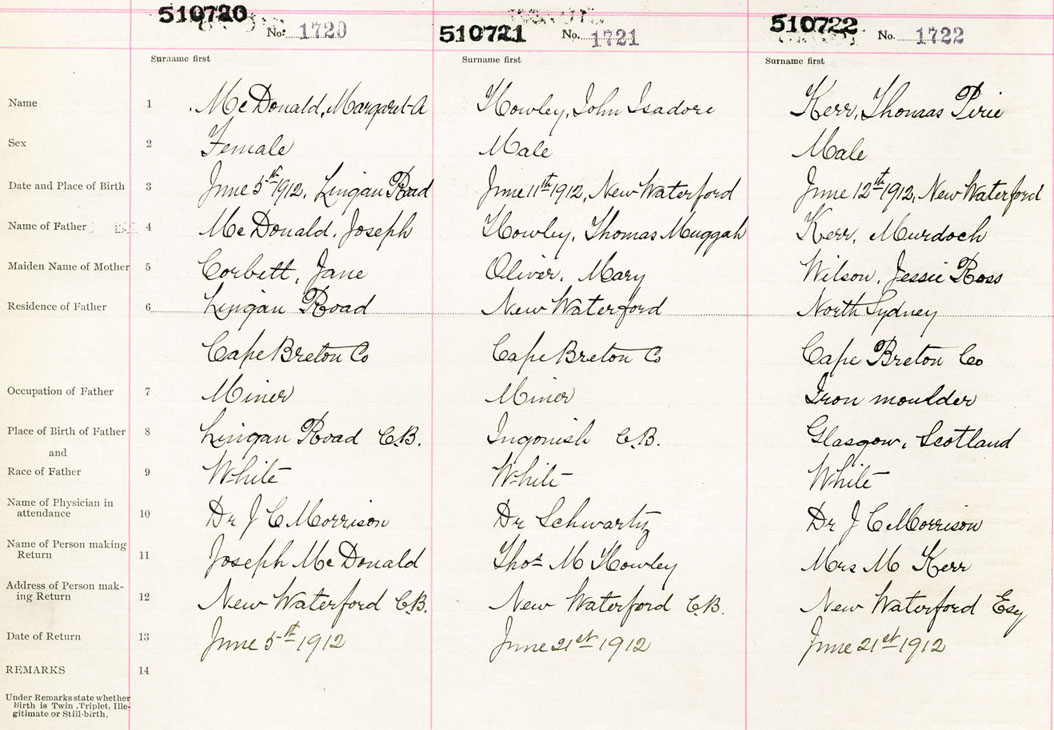 510720 No. 1720 510721 No. 1721 510722 No. 1722
Surname first Surname first Surname first
Name 1 McDonald, Margaret A Howley, John Isadore Kerr, Thomas Pirie
Sex 2 Female Male Male
Date and Place of Birth 3 June 5th 1912, Lingan Road June 11th 1912, New Waterford June 12th 1912, New Waterford
Name of Father 4 McDonald, Joseph Howley, Thomas Muggah Kerr, Murdoch
Maiden Name of Mother 5 Corbett, Jane Oliver, Mary Wilson, Jessie Ross
Residence of Father 6 Lingan Road New Waterford North Sydney
Cape Breton Co Cape Breton Co Cape Breton Co
Occupation of Father 7 Miner Miner Iron moulder
Place of Birth of Father 8 Lingan Road C.B. Ingonish C.B. Glasgow, Scotland
and
Race of Father 9 White White White
Name of Physician in
attendance 10 Dr J C Morrison Dr Schwartz Dr J C Morrison
Name of Person making
Return 11 Joseph McDonald Thos M Howley Mrs M Kerr
Address of Person mak-
ing Return 12 New Waterford C.B. New Waterford C.B. New Waterford Esq
Date of Return 13 June 5th 1912 June 21st 1912 June 21st 1912
REMARKS 14
Under Remarks state whether
Birth is Twin, Triplet, Ille-
gitimate or Still-birth.